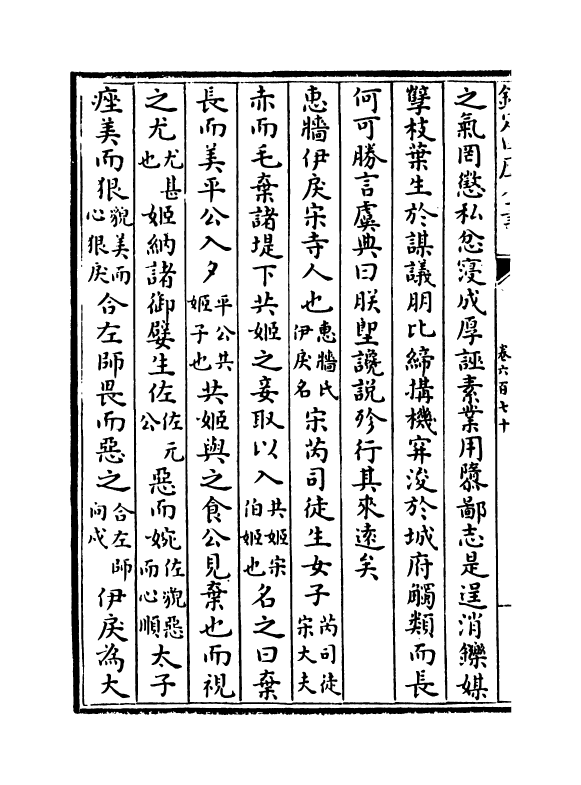 卷六百七十
之氣罔懲私忿寖成厚誣素業用隳鄙志是逞消鑠媒
孽枝葉生於謀議朋比締搆機穽浚於城府觸類而長
何可勝言虞典曰朕堲讒説殄行其來逺矣
惠牆伊戾宋寺人也惠牆氏伊戾名宋芮司徒生女子芮司徒宋大夫
赤而毛棄諸堤下共姬之妾取以入共姬宋伯姬也名之曰棄
長而美平公入夕平公共姬子也共姬與之食公見棄也而視
之尤尤甚也姬納諸御嬖生佐佐元公惡而婉佐貌惡而心順太子
痤美而狠貌美而心狠戾合左師畏而惡之合左師向戌伊戾為大